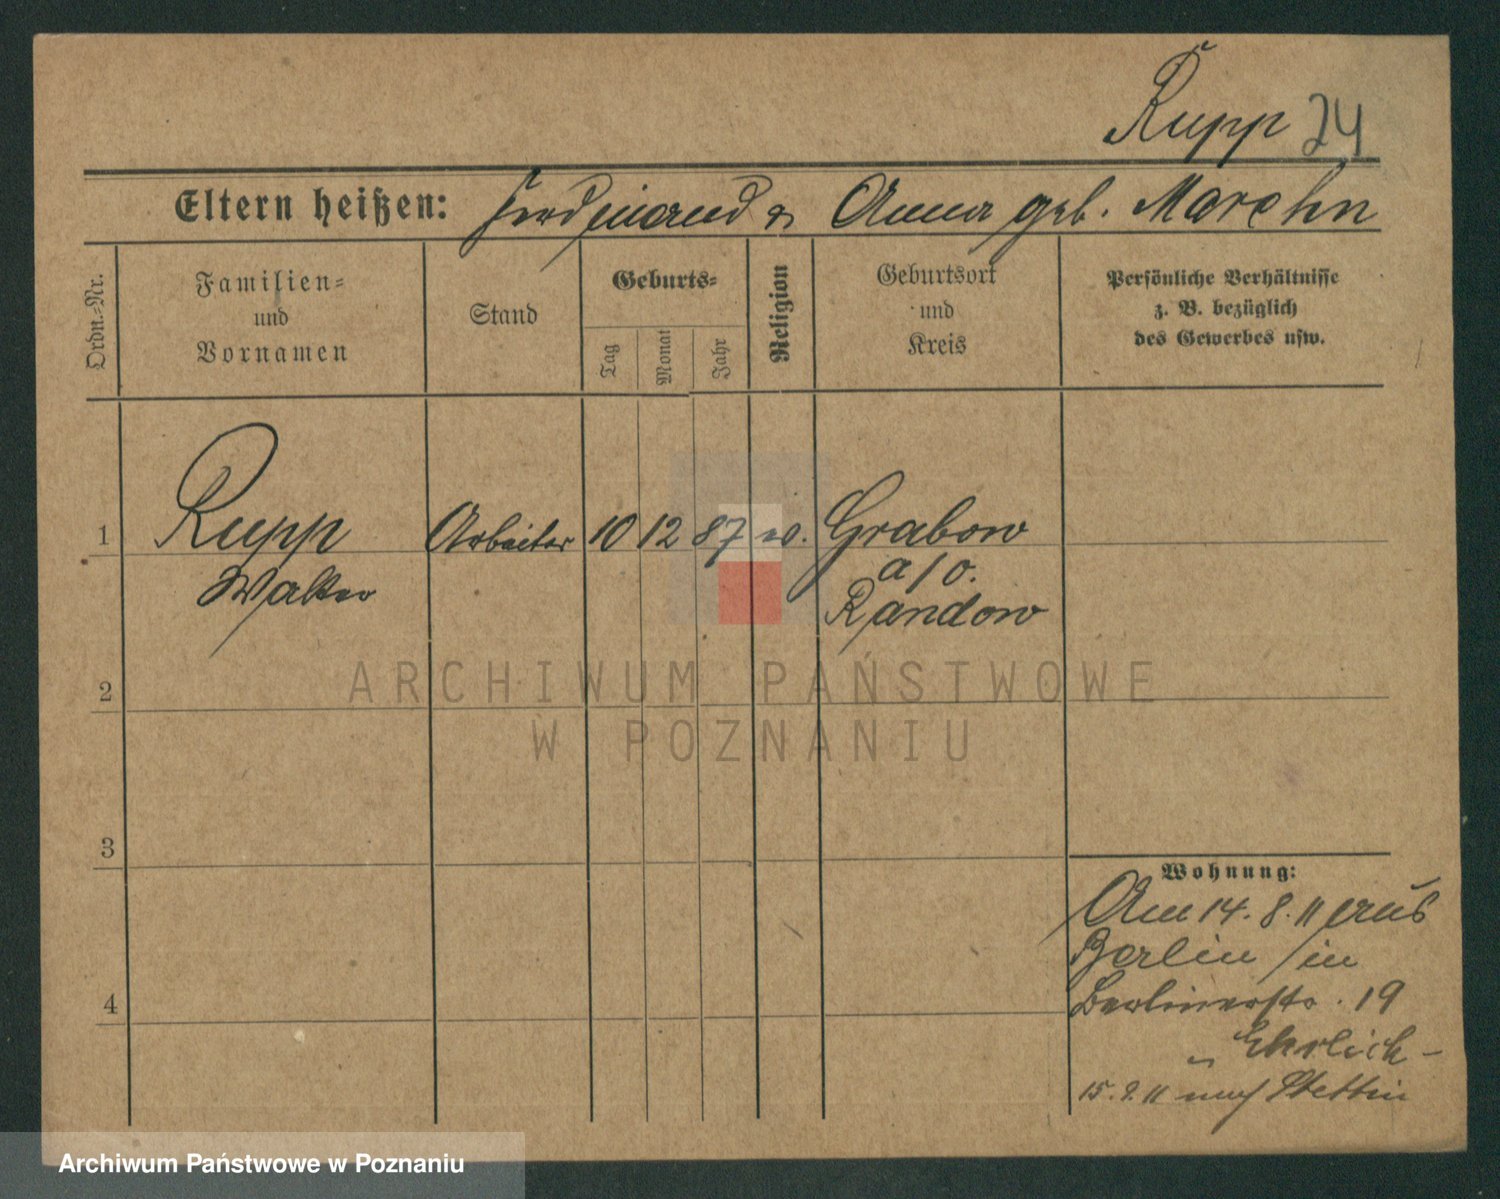 Rupp 24
Eltern heißen: Ferdinand & Anna geb. Marohn
Ordn.-Nr.
Familien-
und
Vornamen
Stand
Geburts-
Tag
Monat
Jahr
Religion
Geburtsort
und
Kreis
Persönliche Verhältnisse
z. B. bezüglich
des Gewerbes usw.
1 Rupp Arbeiter 10 12 87 ev. Grabow
a/o.
Walter Randow
2
3
4
Wohnung:
Am 14. 8. 11 aus
Berlin in
Berlinerstr. 19
Ehrlich -
15. 9. 11 nach Stettin
ARCHIWUM PAŃSTWOWE
W POZNANIU
Archiwum Państwowe w Poznaniu